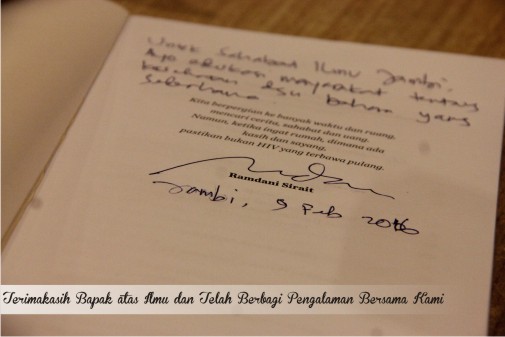 Untuk Sahabat Ilmu Jambi.
Ayo edukasi masyarakat tentang
kesehatan dgn bahasa yang
sederhana
Kita berpergian ke banyak waktu dan ruang,
mencari cerita, sahabat dan uang.
Namun, ketika ingat rumah, dimana ada
kasih dan sayang,
pastikan bukan HIV yang terbawa pulang.
Ramdani Sirait
Jambi, 9 Feb 2016
Terimakasih Bapak atas Ilmu dan Telah Berbagi Pengalaman Bersama Kami